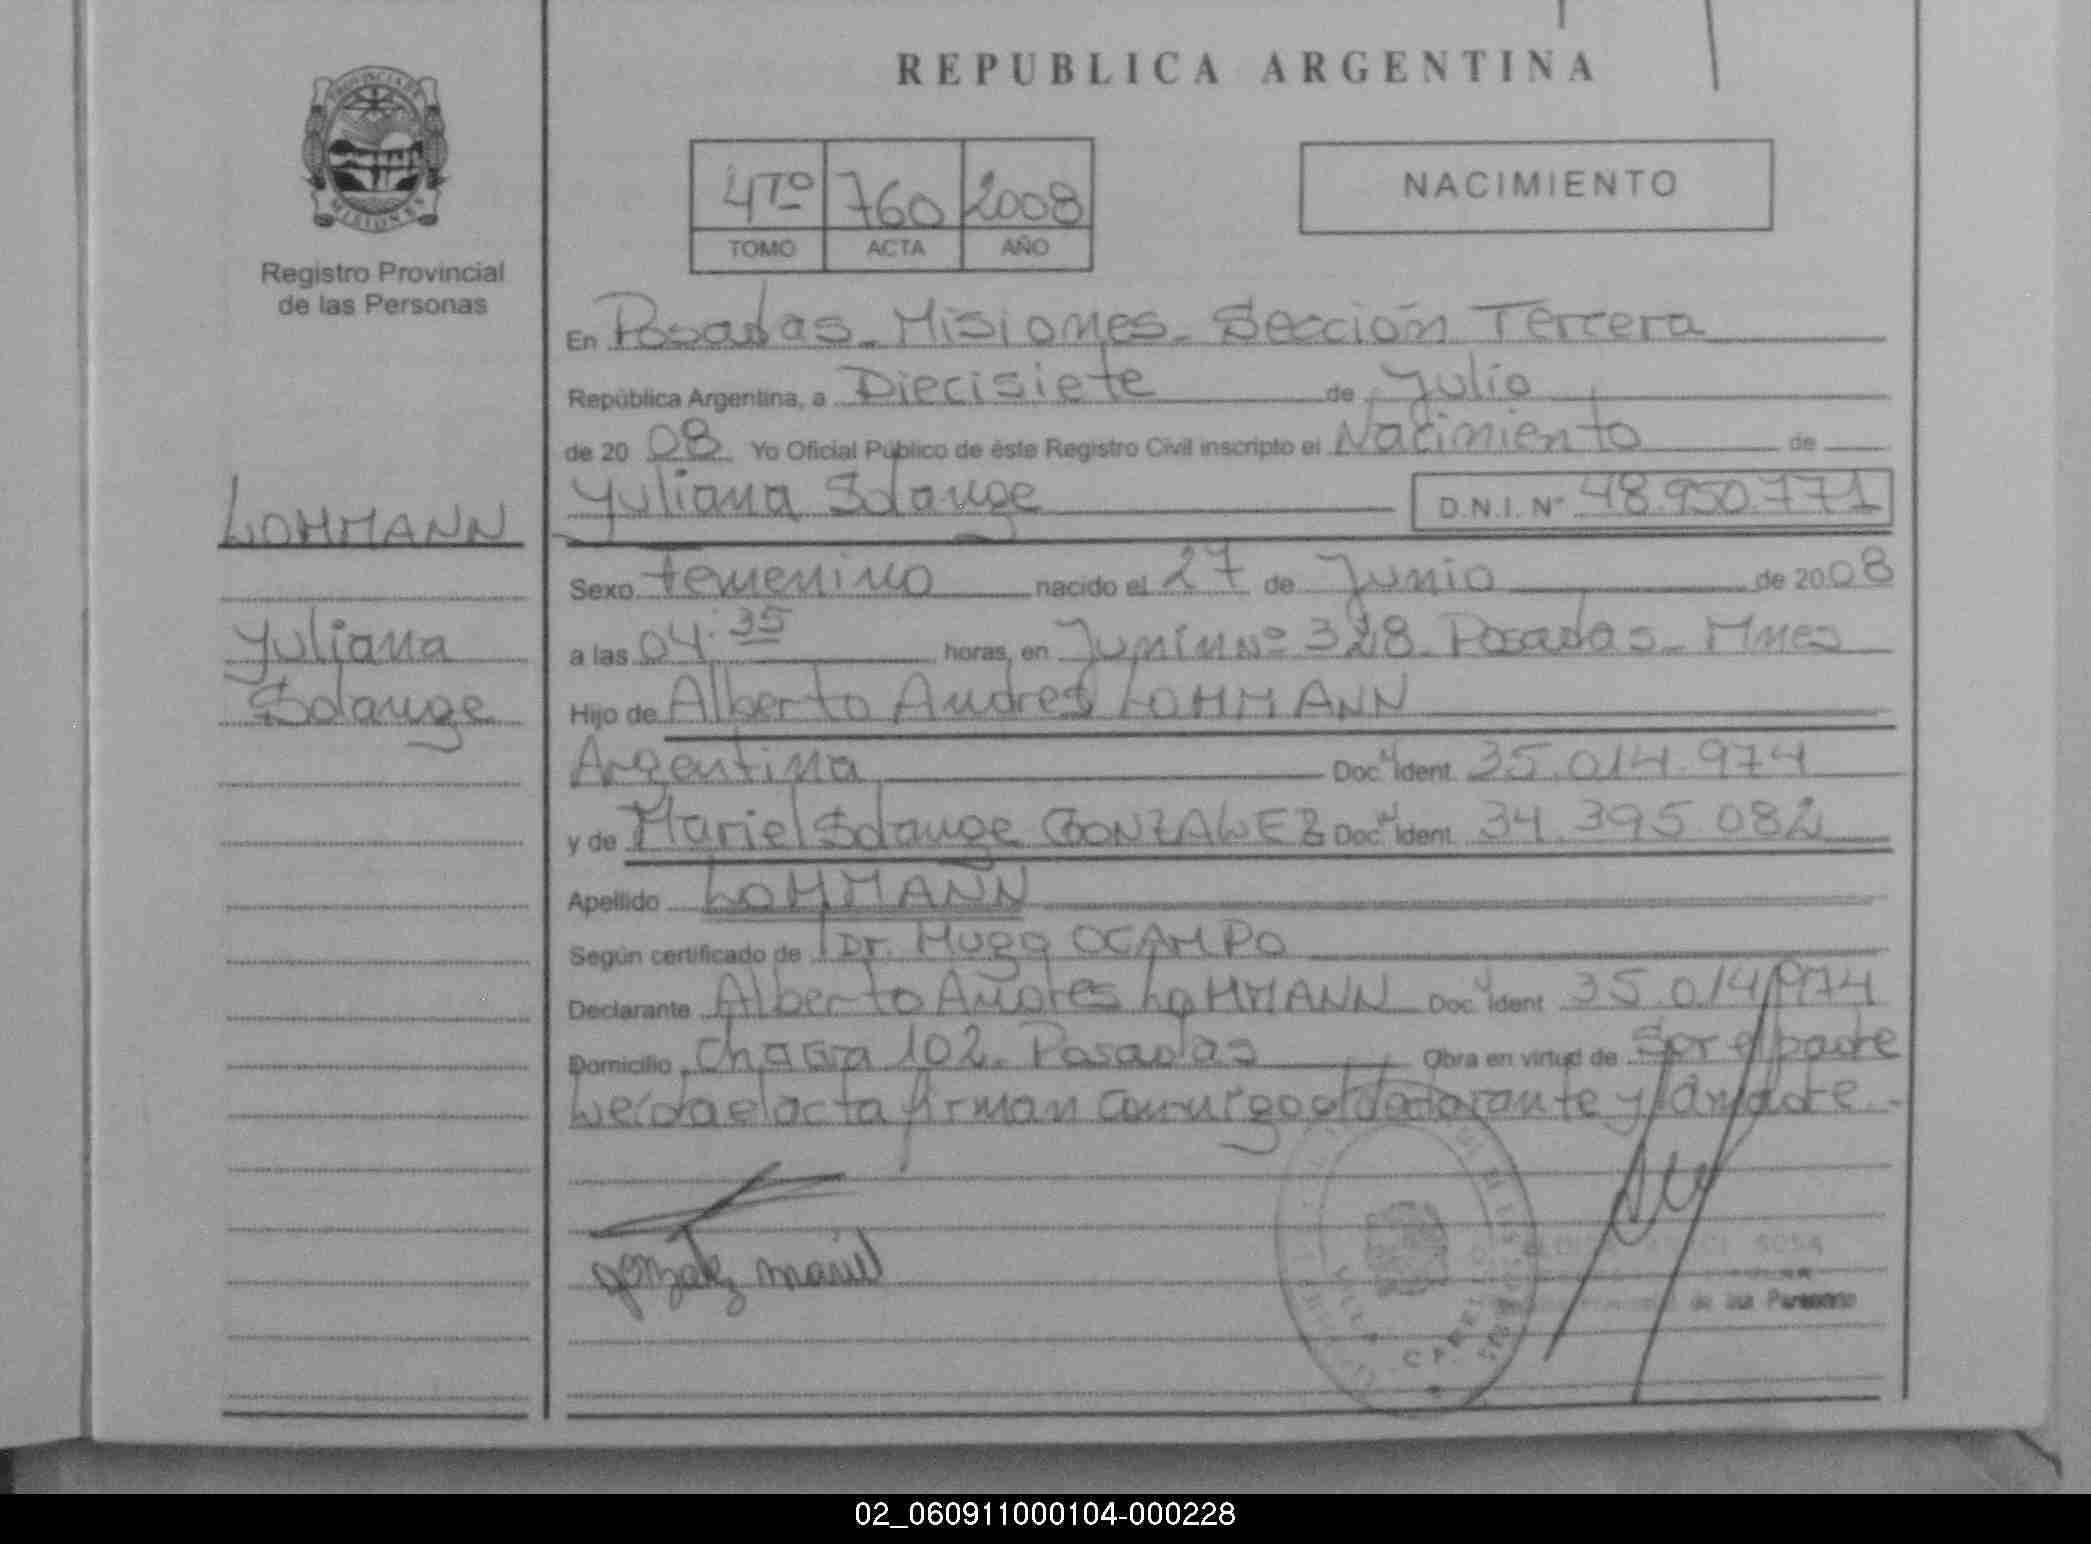 REPUBLICA ARGENTINA
PROVINCIA DE
MISIONES
Registro Provincial
de las Personas
4to 760 2008
TOMO ACTA AÑO
NACIMIENTO
En Posadas - Misiones - Sección Tercera
República Argentina, a Diecisiete de Julio
de 2008 Yo Oficial Público de éste Registro Civil inscripto el Nacimiento de
Yuliana Solange D.N.I. Nº 48.950.771
LOHMANN
Yuliana
Solange
Sexo femenino nacido el 27 de Junio de 2008
a las 04:35 horas, en Junín Nº 328 - Posadas - Mnes
Hijo de Alberto Andres LOHMANN
Argentina Doc Ident. 35.014.974
y de Mariel Solange GONZALEZ Doc Ident. 34.395.082
Apellido LOHMANN
Según certificado de Dr. Hugo OCAMPO
Declarante Alberto Andres LOHMANN Doc Ident 35.014.974
Domicilio Chacra 102 - Posadas Obra en virtud de Ser el padre
Leída el acta firman conmigo el declarante y la madre.-
gonzalez mariel
SOSA
de las Personas
02_060911000104-000228